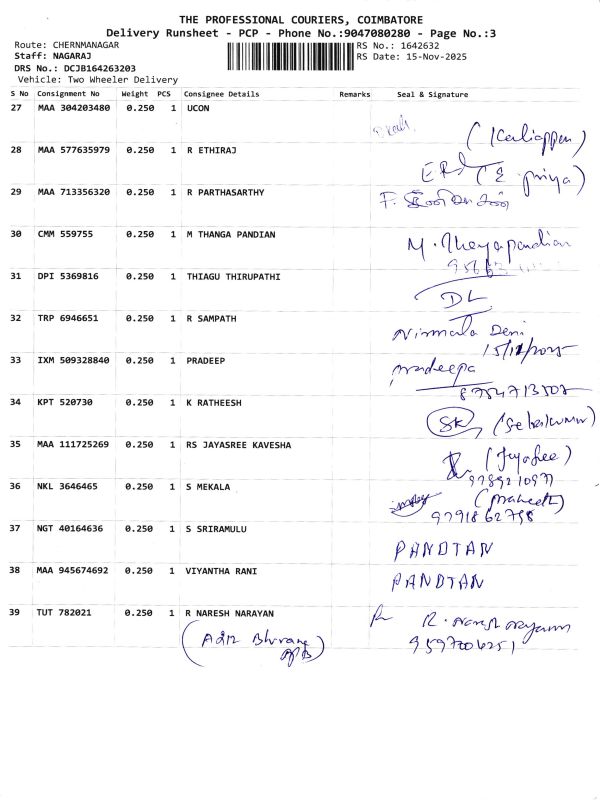 THE PROFESSIONAL COURIERS, COIMBATORE
Delivery Runsheet - PCP - Phone No.:9047080280 - Page No.:3
Route: CHERNMANAGAR
RS No.: 1642632
Staff: NAGARAJ
RS Date: 15-Nov-2025
DRS No.: DCJB164263203
Vehicle: Two Wheeler Delivery
S No Consignment No Weight PCS Consignee Details Remarks Seal & Signature
27 MAA 304203480 0.250 1 UCON
(Kaliappan)
28 MAA 577635979 0.250 1 R ETHIRAJ
(E priya)
29 MAA 713356320 0.250 1 R PARTHASARTHY
30 CMM 559755 0.250 1 M THANGA PANDIAN
31 DPI 5369816 0.250 1 THIAGU THIRUPATHI
DL
32 TRP 6946651 0.250 1 R SAMPATH
Nirmala Devi
15/11/2025
33 IXM 509328840 0.250 1 PRADEEP
pradeepa
34 KPT 520730 0.250 1 K RATHEESH
SK
35 MAA 111725269 0.250 1 RS JAYASREE KAVESHA
(Jayasree)
36 NKL 3646465 0.250 1 S MEKALA
9791862798
37 NGT 40164636 0.250 1 S SRIRAMULU
PANDIAN
38 MAA 945674692 0.250 1 VIYANTHA RANI
PANDIAN
39 TUT 782021 0.250 1 R NARESH NARAYAN
R. Naresh Narayanan
9597006251